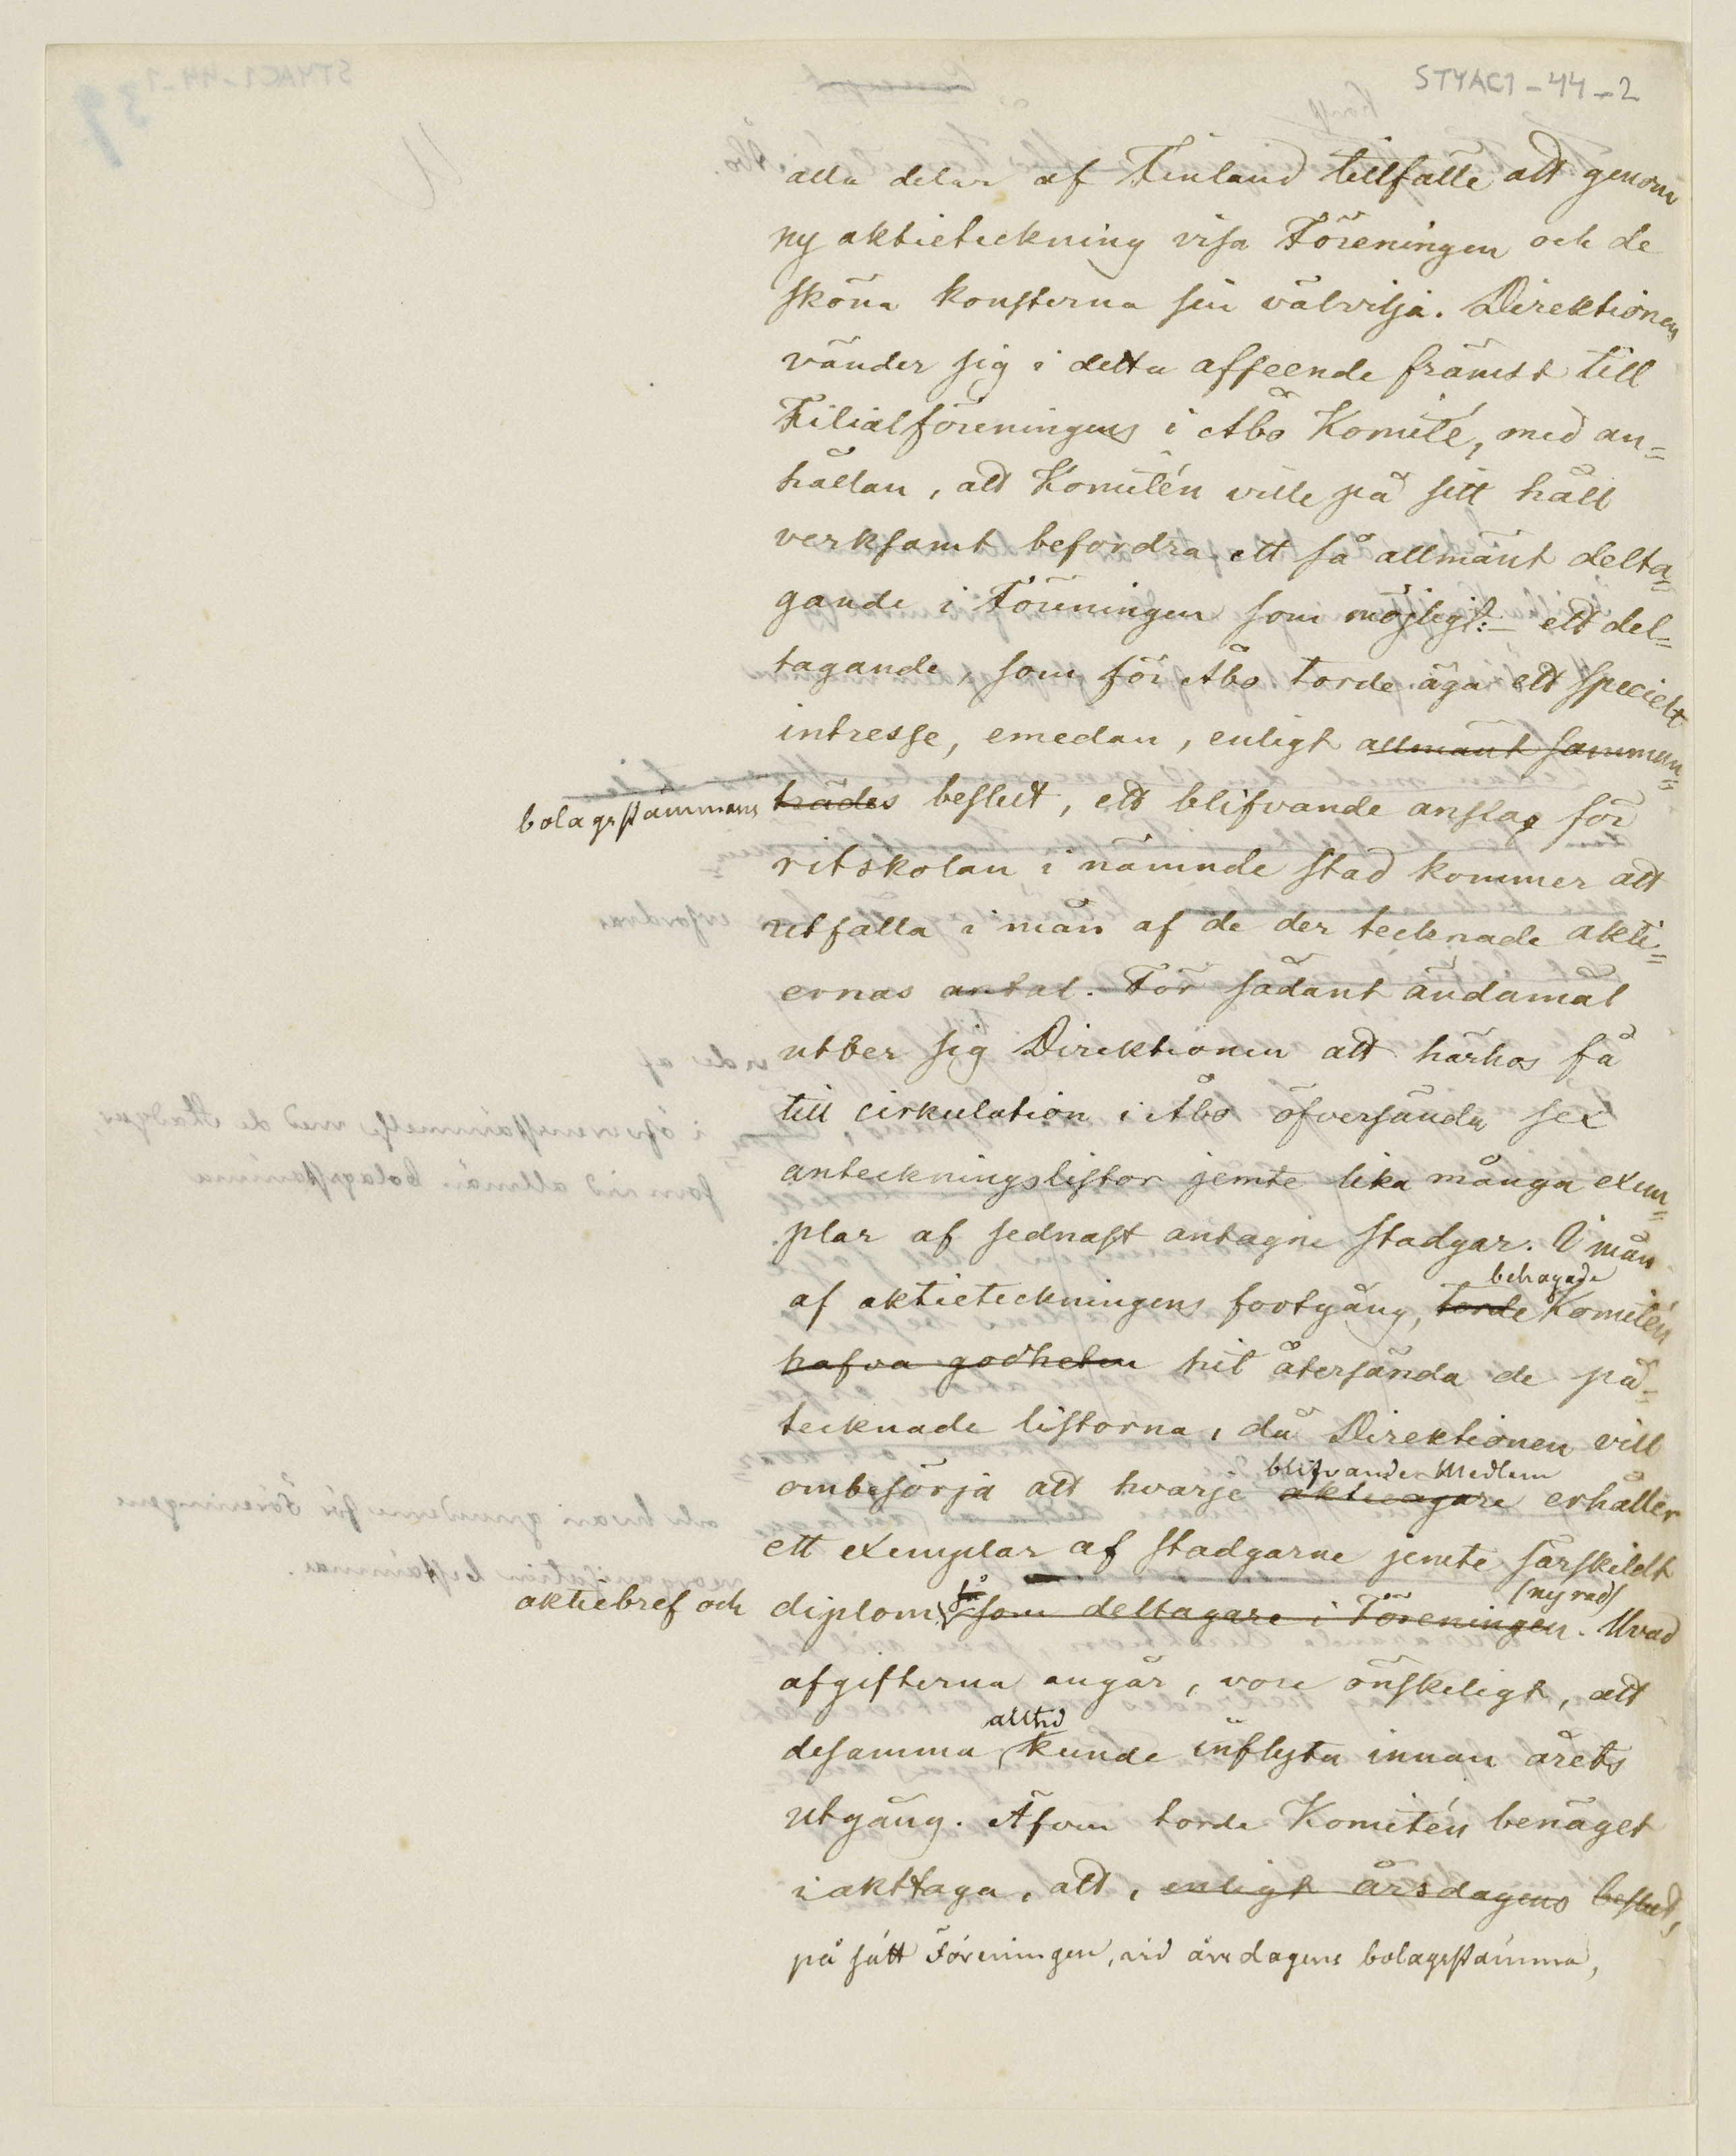 STYAC1-44-2
alla delar af Finland tillfälle att genom
ny aktieteckning visa Föreningen och de
sköna konsterna sin välvilja. Direktionen
vänder sig i detta afseende främst till
Filialföreningens i Åbo Komité, med an=
hållan, att Komitén ville på sitt håll
verksamt befordra ett så allmänt delta=
gande i Föreningen som möjligt:– ett del=
tagande, som för Åbo torde äga ett specielt
intresse, emedan, enligt allmänt samman=
bolagsstämmans trädes beslut, ett blifvande anslag för
ritskolan i nämnde stad kommer att
utfalla i mån af de der tecknade akti=
ernas antal. För sådant ändamål
utber sig Direktionen att härhos få
till cirkulation i Åbo öfversända sex
anteckningslistor jemte lika många exem=
plar af sednast antagne stadgar. I mån
behagade
af aktieteckningens fortgång, torde Komitén
hafva godheten hit återsända de på=
tecknade listorna, då Direktionen vill
blifvande Medlem
ombesörja att hvarje aktieägare erhåller
ett exemplar af stadgarne jemte särskildt
(ny rad)
aktiebref och diplom som deltagare i Föreningen. Hvad
afgifterna angår, vore önskeligt, att
alltid
desamma kunde inflyta innan årets
utgång. Äfven torde Komitén benäget
iakttaga, att, enligt årsdagens beslut,
på sätt Föreningen, vid årsdagens bolagsstämma,